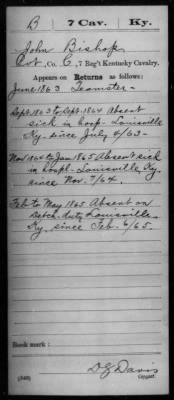 B | 7 Cav. | Ky.
John Bishop
Pvt, Co. C, 7 Reg't Kentucky Cavalry.
Appears on Returns as follows:
June 1863 Teamster-
Sept. 1863 to Sept. 1864 Absent
sick in hosp- Louisville
Ky. since July 4/63-
Nov 1864 to Jan 1865 Absent sick
in hospl- Louisville, Ky.
since Nov. 7/64.
Feb to May 1865 Absent on
Detch. duty Louisville
Ky. since Feb. 6/65.
Book mark:
(546)
D E Davis
Copyist.